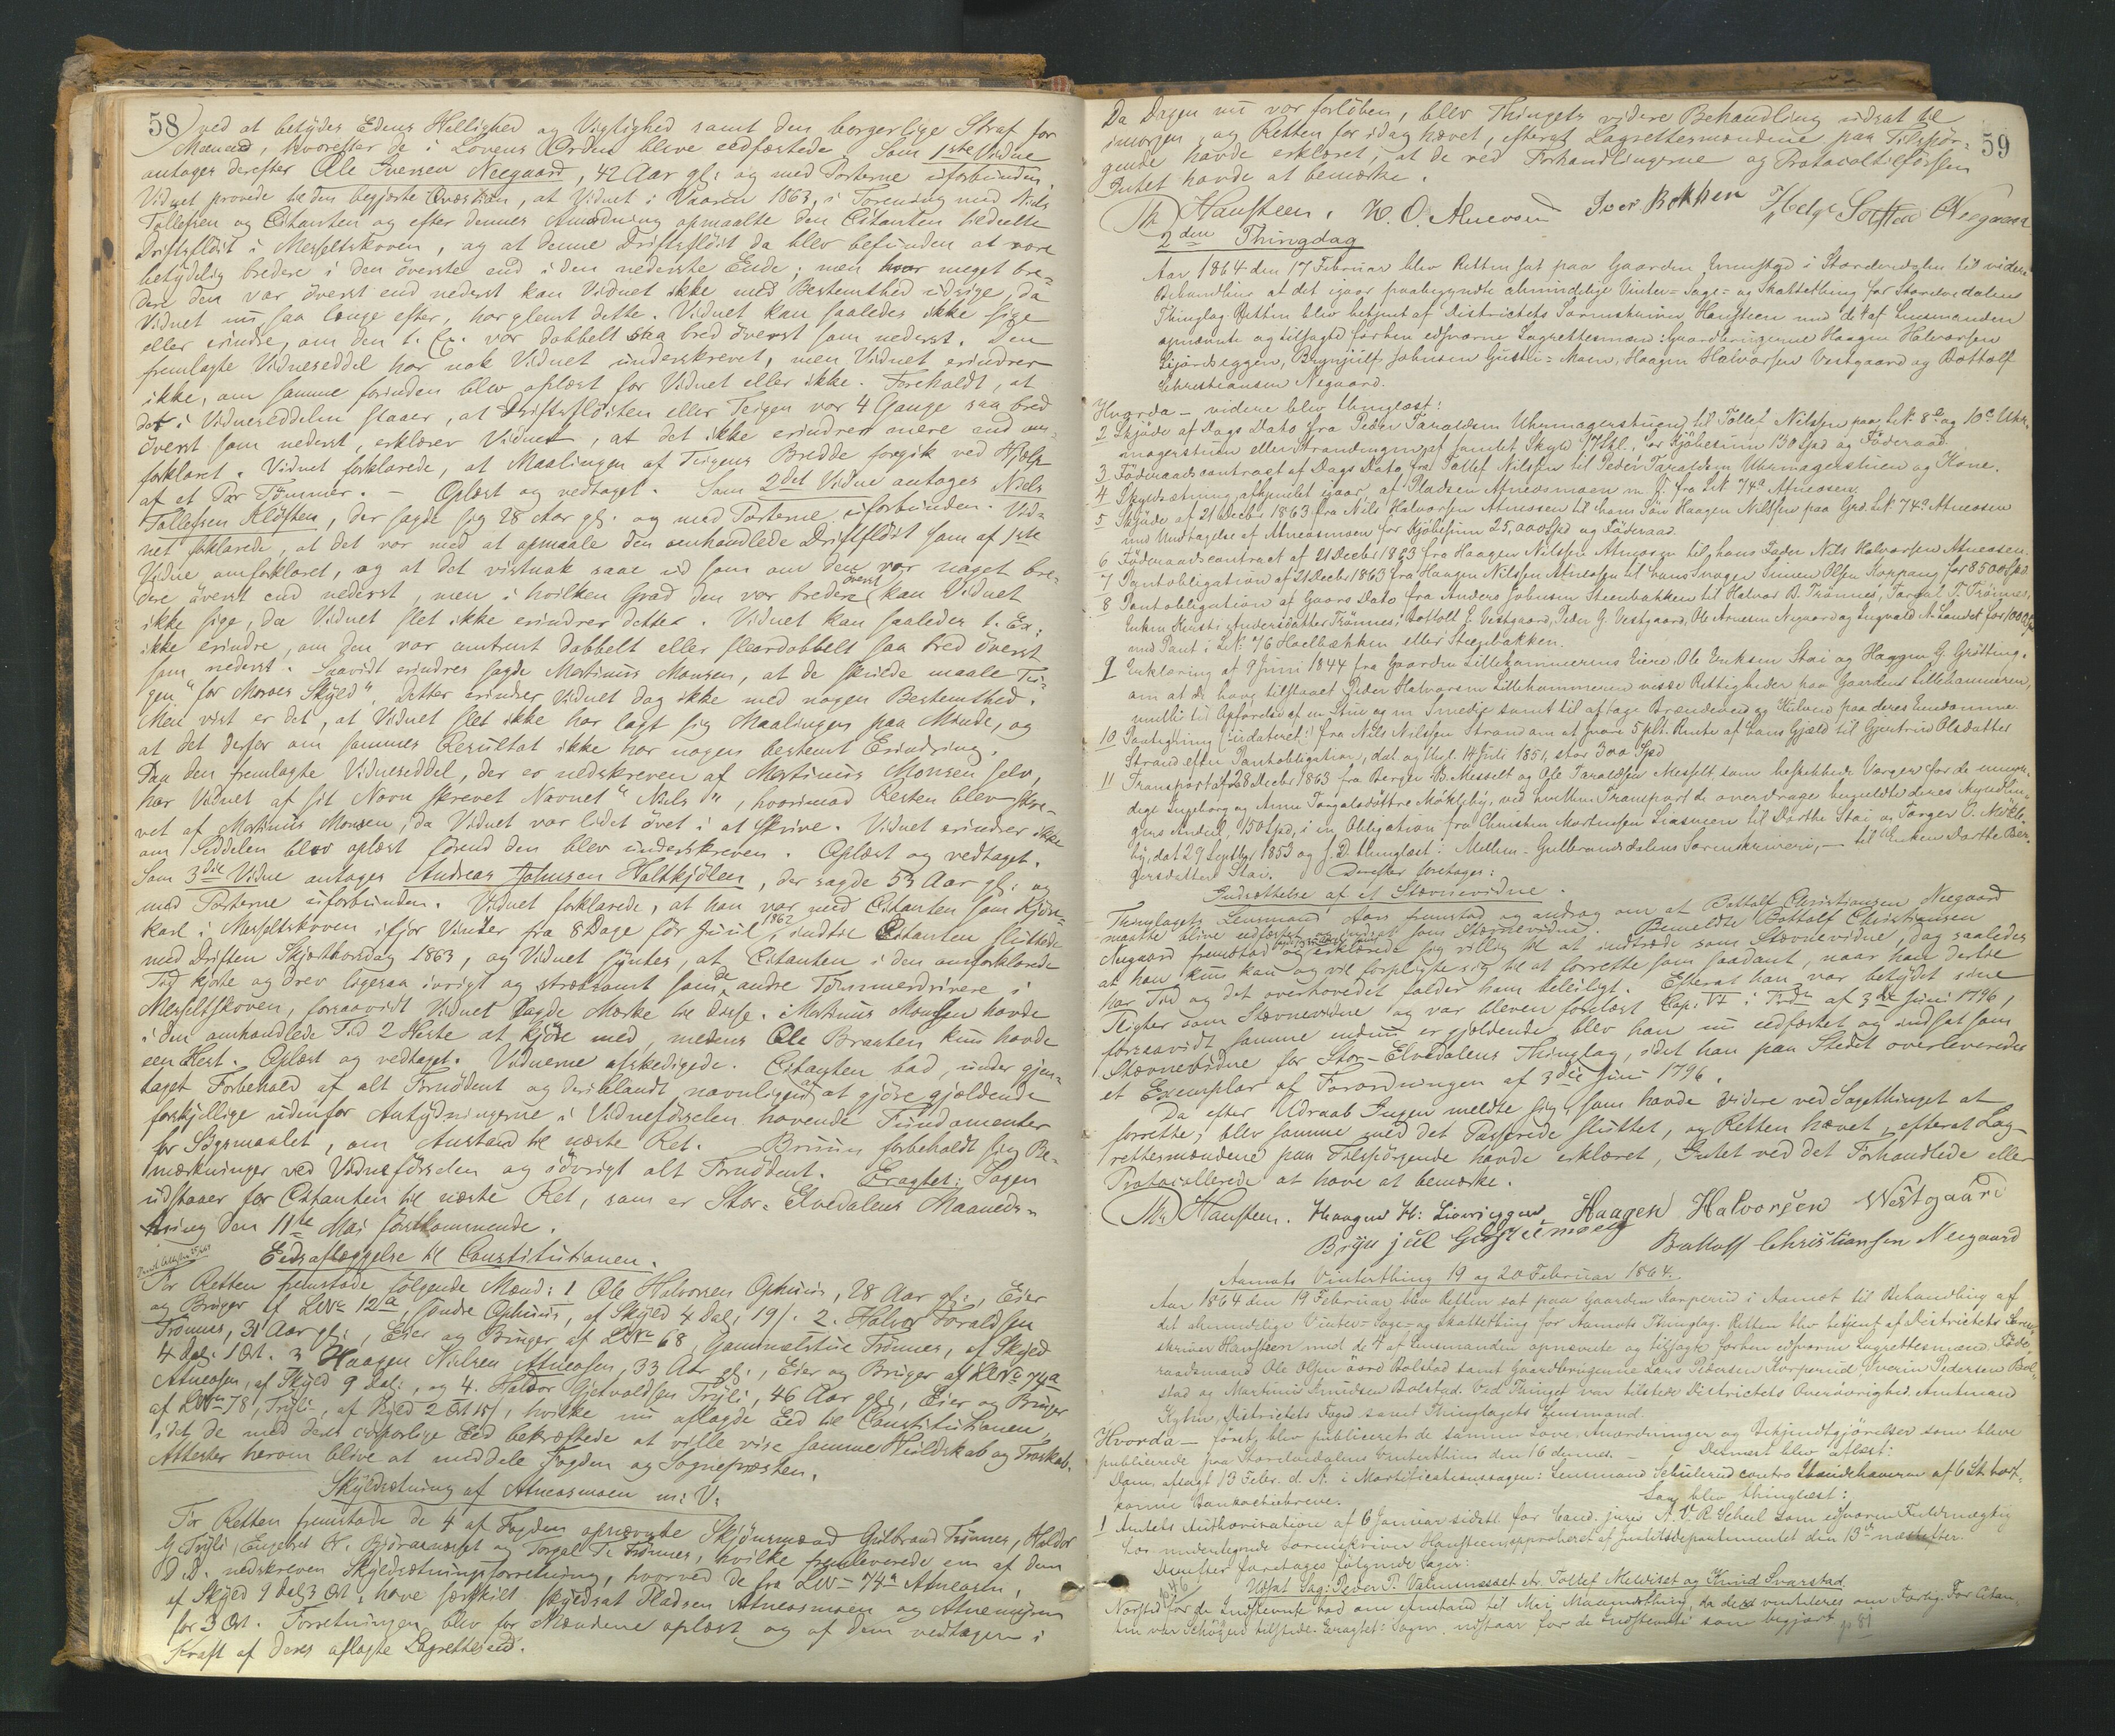 58
ved at betydes Edens Hellighed og Vigtighed samt den borgerlige Straf for
Meened, hvorefter de i Lovens Orden bleve eedfæstede. Som 1ste Vidne
antages derefter Ole Iversen Neegaard, 42 Aar gl: og med Parterne uforbunden.
Vidnet provede til den begjærte Qvæstion, at Vidnet i Vaaren 1863, i Forening med Niels
Tollefsen og Citanten og efter dennes Anordning opmaalte den Citanten tildeelte
Driftsflöit i Messeltskoven, og at denne Driftsflöit da blev befunden at være
betydelig bredere i den överste end i den nederste Ende; men hvor meget bre-
dere den var överst end nederst kan Vidnet ikke med Bestemthed udsige, da
Vidnet nu saa længe efter, har glemt dette. Vidnet kan saaledes ikke sige
eller erindre, om den t. Ex. var dobbelt saa bred överst som nederst. Den
fremlagte Vidneseddel har nok Vidnet underskrevet, men Vidnet erindrer
ikke, om samme forinden blev oplæst for Vidnet eller ikke. Foreholdt, at
det i Vidneseddelen staaer, at Driftsflöiten eller Teigen var 4 Gange saa bred
överst som nederst, erklærer Vidnet, at det ikke erindrer mere end om-
forklaret. Vidnet forklarede, at Maalingen af Teigens Bredde foregik ved Hjelp
af et Par Tömmer. - Oplæst og vedtaget. Som 2det Vidne antages Niels
Tollefsen Klöften, der sagde sig 28 Aar gl: og med Parterne uforbunden. Vid-
net forklarede, at det var med at opmaale den omhandlede Driftflöit som af 1ste
Vidne omforklaret, og at det vistnok saae ud som om den var noget bre-
dere överst end nederst, men i hvilken Grad den var bredere överst kan Vidnet
ikke sige, da Vidnet slet ikke erindrer dette. Vidnet kan saaledes t. Ex:
ikke erindre, om den var omtrent dobbelt eller fleerdobbelt saa bred överst
som nederst. Saavidt erindres sagde Martinus Monsen, at de skulde maale Tei-
gen "for Moroes Skyld". Dette erindrer Vidnet dog ikke med nogen Bestemthed.
Men vist er det, at Vidnet slet ikke har lagt sig Maalingen paa Minde, og
at det derfor om sammes Resultat ikke har nogen bestemt Erindring.
Paa den fremlagte Vidneseddel, der er nedskreven af Martinus Monsen selv,
har Vidnet af sit Navn skrevet Navnet "Niels", hvorimod Resten blev skre-
vet af Martinus Monsen, da Vidnet var lidet övet i at skrive. Vidnet erindrer ikke
om Seddelen blev oplæst förend den blev underskreven. Oplæst og vedtaget.
Som 3die Vidne antages Andreas Johnsen Holtkjölen, der sagde 53 Aar gl: og
med Parterne uforbunden. Vidnet forklarede, at han var med Citanten som Kjöre-
karl i Messeltskoven ifjor Vinter fra 8 Dage för Juul 1862 indtil Citanten sluttede
med Driften Skjærthorsdag 1863, og Vidnet syntes, at Citanten i den omforklarede
Tid kjörte og drev ligesaa ivrigt og stræbsomt som de andre Tömmerdrivere i
Messeltskoven, forsaavidt Vidnet lagde Mærke til disse. Martinus Monsen havde
i den omhandlede Tid 2 Heste at kjöre med, medens Ole Braaten kun havde
een Hest. Oplæst og vedtaget. Vidnerne afskedigede. Citanten bad, under gjen-
taget Forbehold af alt Fornödent og deriblandt navnligen at gjöre gjældende
forskjellige udenfor Antydningerne i Vidneförselen havende Fundamenter
for Sögsmaalet, om Anstand til næste Ret. Bruun forbeholdt sig Be-
mærkninger ved Vidneförselen og iövrigt alt Fornödent. Eragtet: Sagen
udstaaer for Citanten til næste Ret, som er Stor-Elvedalens Maaneds-
thing den 11te Mai förstkommende.
Eedsaflæggelse til Constitutionen.
For Retten fremstode fölgende Mænd: 1 Ole Halvorsen Ophuus, 28 Aar gl:, Eier
og Bruger af LNr 12a, söndre Ophuus, af Skyld 4 Dal: 19 s. 2. Halvor Toraldsen
Trönnes, 31 Aar gl:, Eier og Bruger af LNr 68, Gammelstue Trönnes, af Skyld
4 Dal. 1 Ort. 3 Haagen Nielsen Atneosen, 33 Aar gl:, Eier og Bruger af LNr 74a
Atneosen, af Skyld 9 Dal:, og 4. Haldor Gjetvoldsen Tryli, 46 Aar gl:, Eier og Bruger
af LNr 78, Tryli, af Skyld 2 Ort 15 s, hvilke nu aflagde Eed til Constitutionen,
idet de med deres corporlige Eed bekræftede at ville vise samme Huldskab og Troskab.
Attester herom blive at meddele Fogden og Sognepræsten.
Skyldsætning af Atneosmoen m: V:
For Retten fremstode de 4 af Fogden opnævnte Skjönsmænd Gulbrand Trönnes, Haldor
G. Tryli, Engebret H. Björaanæsset og Torgal T. Trönnes, hvilke fremleverede en af dem
D. D. nedskreven Skyldsætningsforretning, hvorved de fra LNr 74a Atneosen,
af Skyld 9 Dal 3 Ort, have særskilt skyldsat Pladsen Atneosmoen og Atnemyren
for 3 Ort. Forretningen blev for Mændene oplæst og af dem vedtagen i
Kraft af deres aflagte Lagrettes eed.
59
Da Dagen nu var forlöben, blev Thingets videre Behandling udsat til
imorgen, og Retten for idag hævet, efterat Lagrettesmændene paa Tilspör-
gende havde erklæret, at de ved Forhandlingerne og Protocoltilförslen
Intet havde at bemærke.
Th Hansteen. H. O. Atneosen Iver Bekken Helge Neegaard
2den Thingdag
Aar 1864 den 17 Februar blev Retten sat paa Gaarden Evenstad i Storelvedalen til videre
Behandling af det igaar paabegyndte almindelige Vinter- Sage- og Skattething for Storelvedalens
Thinglag. Retten blev betjent af Districtets Sorenskriver Hansteen med de 4 af Lensmanden
opnævnte og tilsagte forhen edsvorne Lagrettesmænd: Gaardbrugerne Haagen Halvorsen
Liövseggen, Brynjulf Johnsen Gusten-Moen, Haagen Halvorsen Vestgaard og Bottolf
Christiansen Negaard.
Hvorda - videre blev thinglæst:
2 Skjöde af Dags Dato fra Peder Taraldsen Uhrmagerstuen til Tollef Nilssen paa LNr 8e og 10c Uhr-
magerstuen eller Strandengen, af samlet Skyld, for Kjöbesum 130 Spd og Föderaad.
3 Föderaadscontract af Dags Dato fra Tollef Nilssen til Peder Taraldsen Uhrmagerstuen og Kone.
4 Skyldsætning, afhjemlet igaar, af Pladsen Atneosmoen m. V. fra LNr 74a Atneosen.
5 Skjöde af 21 Decbr 1863 fra Nils Halvorsen Atneosen til hans Sön Haagen Nilssen paa Grd. LNr 74a Atneosen
med Undtagelse af Atneosmoen for Kjöbesum 25,000 Spd og Föderaad.
6 Föderaadscontract af 21 Decbr 1863 fra Haagen Nilssen Atneosen til hans Fader Nils Halvorsen Atneosen.
7 Pantobligation af 21 Decbr 1863 fra Haagen Nilssen Atneosen til hans Svoger Simen Olsen Koppang for 8500 Spd.
8 Pantobligation af Gaars Dato fra Anders Johnsen Steenbakken til Halvor B. Trönnes, Torgal T. Trönnes,
Enken Kirsti Andersdatter Trönnes, Bottolf G. Vestgaard, Peder G. Vestgaard, Ole Arnesen Negaard og Ingvald A. Sandet for 100 Spd
med Pant i LNr 76 Hoelbækken eller Steenbakken.
9 Erklæring af 9 Juni 1844 fra Gaarden Lillehammerens Eiere Ole Eriksen Stai og Haagen G. Grötting.
om at de have tilstaaet Peder Halvorsen Lillehammeren visse Rettigheder paa Gaarden Lillehammeren,
nemlig til Opförelse af en Stue og en Smedie samt til aftage Brændeved og Kulved paa deres Eiendomme.
10 Paategning (:udateret:) fra Nils Nilssen Strand om at svare 5 pCt. Rente af hans Gjæld til Gjertrud Olsdatter
Strand efter Pantobligation, dat. og thgl. 14 Juli 1851, stor 300 Spd
11 Transport af 28 Decbr 1863 fra Berger B. Messelt og Ole Taraldsen Messelt, som beskikkede Værger for de umyn-
dige Ingeborg og Anne Torgalsdöttre Mökleby, ved hvilken Transport de overdrage bemeldte deres Myndlin-
gers Andeel, 150 Spd, i en Obligation fra Christen Mortensen Liasæteren til Dorthe Stai og Torger O. Mökle-
by, dat. 29 Septbr 1853 og s. D. thinglæst i Mellem-Gulbrandsdalens Sorenskriveri, - til Enken Dorthe Ber-
gersdatter Stai. Derefter foretages:
Indsættelse af et Stævnevidne.
Thinglagets Lensmand Aars fremstod og androg om at Bottolf Christiansen Neegaard
maatte blive edfæstet og indsat som Stævnevidne. Bemeldte Bottolf Christiansen
Neegaard fremstod og erklærede sig villig til at indtræde som Stævnevidne, dog saaledes
at han kun kan og vil forpligte sig til at forrette som saadant, naar han dertil
har Tid og det overhovedet falder ham beleiligt. Efterat han var betydet sine
Pligter som Stævnevidne og var bleven forelæst Cap. VI i Frdn af 3die Juni 1796,
forsaavidt samme endnu er gjældende, blev han nu eedfæstet og indsat som
Stævnevidne for Stor-Elvedalens Thinglag, idet han paa Stedet overleveredes
et Exemplar af Forordningen af 3die Juni 1796.
Da efter Udraab Ingen meldte sig, som havde videre ved Sagethinget at
forrette, blev samme med det Passerede sluttet, og Retten hævet, efterat Lag-
rettesmændene paa Tilspörgende havde erklæret, Intet ved det Forhandlede eller
Protocollerede at have at bemærke.
Th Hansteen. Haagen H: Haagen Halvorsen Westgaard
Brynjul Bottolf Christiansen Neegaard
Aamots Vinterthing 19 og 20 Februar 1864.
Aar 1864 den 19 Februar blev Retten sat paa Gaarden Korperud i Aamot til Behandling af
det almindelige Vinter- Sage- og Skattething for Aamots Thinglag. Retten blev betjent af Districtets Soren-
skriver Hansteen med de 4 af Lensmanden opnævnte og tilsagte forhen edsvorne Lagrettesmænd, Föde-
raadsmand Ole Olsen Bolstad samt Gaardbrugerne Lars Pedersen Korperud, Iverin Pedersen Bol-
stad og Martinus Knudsen Bolstad. Ved Thinget var tilstede Districtets Overövrighed, Amtmand
Kyhn, Districtets Foged samt Thinglagets Lensmand.
Hvorda - först blev publiceret de samme Love, Anordninger og Bekjendtgjörelser som bleve
publicerede paa Storelvedalens Vinterthing den 16 dennes. - Dernæst blev aflæst:
Dom, afsagt 13 Febr. d. A. i Mortificationssagen: Lensmand Schulerud contra Ihændehaveren af 6 St. bort-
komne Bankactiebreve. Saa blev thinglæst:
1 Amtets Authorisation af 6 Januar sidstl. for Cand. juris A. V. R. Scheel som edsvoren Fuldmægtig
hos undertegnede Sorenskriver Hansteen, approberet af Justitsdepartementet den 13de næstefter.
Derefter foretages fölgende Sager:
Udsat Sag: Peder P. Valmsnæsset ctr. Tollef Melviset og Knud Svarstad.
Norstad for de Indstevnte bad om Anstand til Mai Maanedsthing, da det var om Forlig. For Citan-
ten var Schögen tilstede. Eragtet: Sagen udstaar for de Indstevnte som begjært p 81